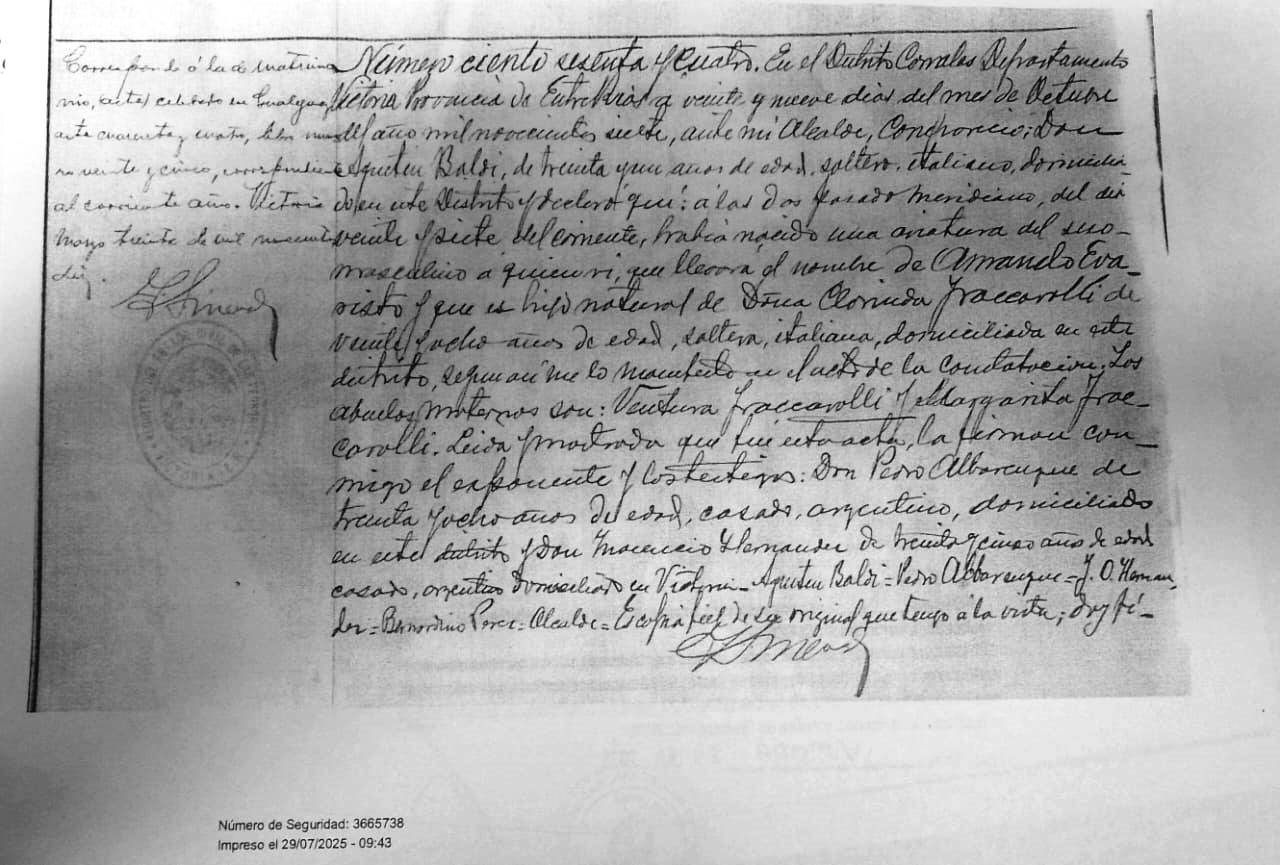 Corresponde á la de matrimo
nio, (acta) celebrado en Gualeguay
acta cuarenta y cuatro, libro nume
ro veinte y cinco, correspondiente
al corriente año. Victoria
Marzo treinta de mil novecientos
diez.
Número ciento sesenta y cuatro. En el Distrito Corrales Departamento
Victoria Provincia de Entre Rios a veinte y nueve dias del mes de Octubre
del año mil novecientos siete, ante mi Alcalde, Compareció: Don
Agustin Baldi, de treinta y un años de edad, soltero, italiano, domicilia
do en este Distrito y declaró que: á las dos pasado meridiano, del dia
veinte y siete del corriente, habia nacido una criatura del sexo
masculino a quien vi, que llevará el nombre de Amando Eva-
risto y que es hijo natural de Doña Clorinda Fraccarolli de
veinte y ocho años de edad, soltera, italiana, domiciliada en este
distrito, segun asi me lo manifestó en el acto de la constatacion. Los
abuelos maternos son: Ventura Fraccarolli y Margarita Frac-
carolli. Leida y mostrada que fué esta acta, la firman con-
migo el exponente y los testigos: Don Pedro Albarenque de
treinta y ocho años de edad, casado, argentino, domiciliado
en este distrito y Don Inocencio Hernandez de treinta y cinco años de edad
casado, argentino domiciliado en Victoria - Agustin Baldi = Pedro Albarenque = J. O. Hernan
dez = Bernardino Perez = Alcalde = Es copia fiel de su original que tengo á la vista; doy fé -
Número de Seguridad: 3665738
Impreso el 29/07/2025 - 09:43